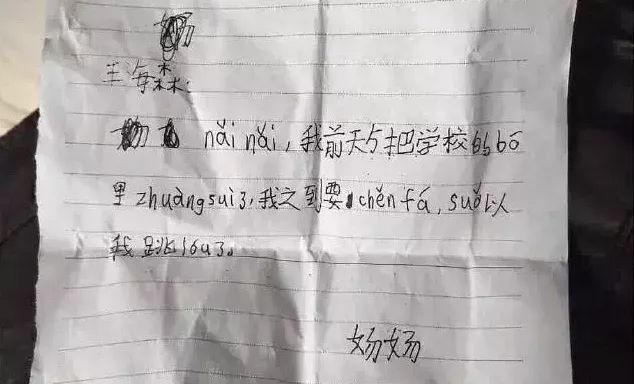 王海森:
nǎi nǎi, 我前天与把学校的bō
里zhuàng suì了, 我之到要chěn fá, suǒ以
我跳lóu了。